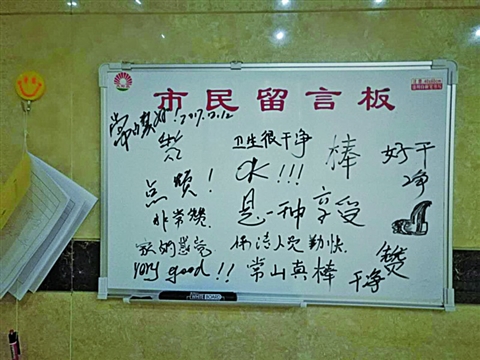 市民留言板
常山真好！2017.2.12
赞
卫生很干净
棒
好干净
OK!!!
点赞！
非常赞
是一种享受
家的感觉
保洁人员勤快
very good!!
常山真棒
干净
赞
WHITEBOARD